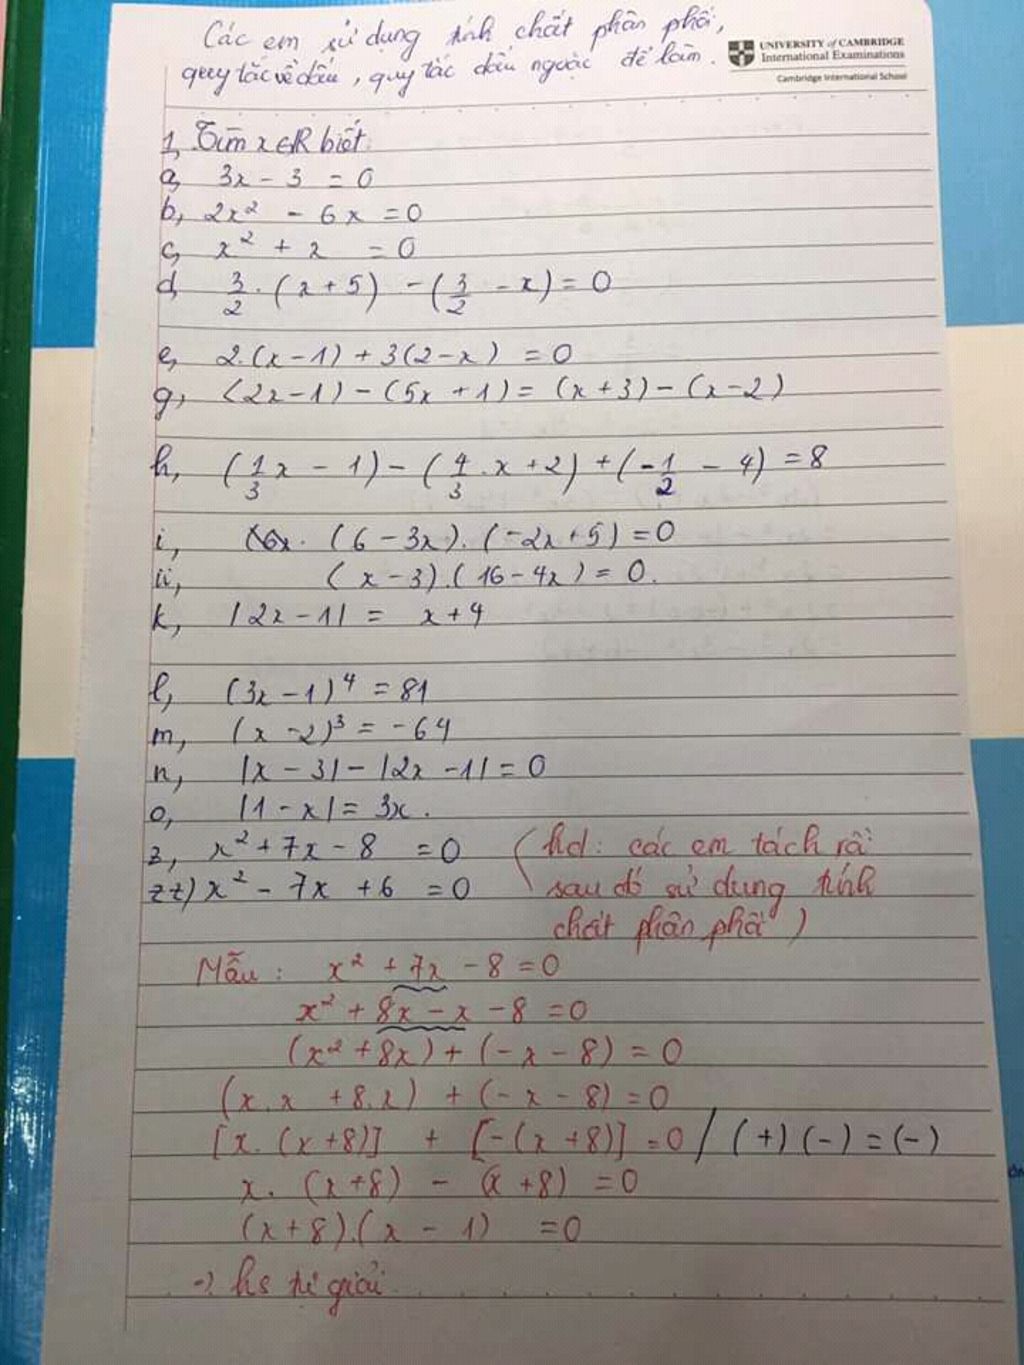 Các em sử dụng tính chất phân phối,
quy tắc về dấu, quy tắc dấu ngoặc để làm.
UNIVERSITY of CAMBRIDGE
International Examinations
Cambridge International School
1, Tìm x ∈ R biết
a, 3x - 3 = 0
b, 2x² - 6x = 0
c, x² + x = 0
d, 3/2 . (x + 5) - (3/2 - x) = 0
e, 2.(x - 1) + 3(2 - x) = 0
g, (2x - 1) - (5x + 1) = (x + 3) - (x - 2)
h, (1/3 x - 1) - (4/3 . x + 2) + (-1/2 - 4) = 8
i, (6 - 3x). (-2x + 5) = 0
ii, (x - 3).(16 - 4x) = 0.
k, |2x - 1| = x + 4
l, (3x - 1)⁴ = 81
m, (x - 2)³ = -64
n, |x - 3| - |2x - 1| = 0
o, |1 - x| = 3x.
z, x² + 7x - 8 = 0
zz) x² - 7x + 6 = 0
(hd: các em tách rồi
sau đó sử dụng tính
chất phân phối)
Mẫu: x² + 7x - 8 = 0
x² + 8x - x - 8 = 0
(x² + 8x) + (-x - 8) = 0
(x.x + 8.x) + (-x - 8) = 0
[x. (x + 8)] + [-(x + 8)] = 0 / (+)(-) = (-)
x. (x + 8) - (x + 8) = 0
(x + 8).(x - 1) = 0
→ hs tự giải.